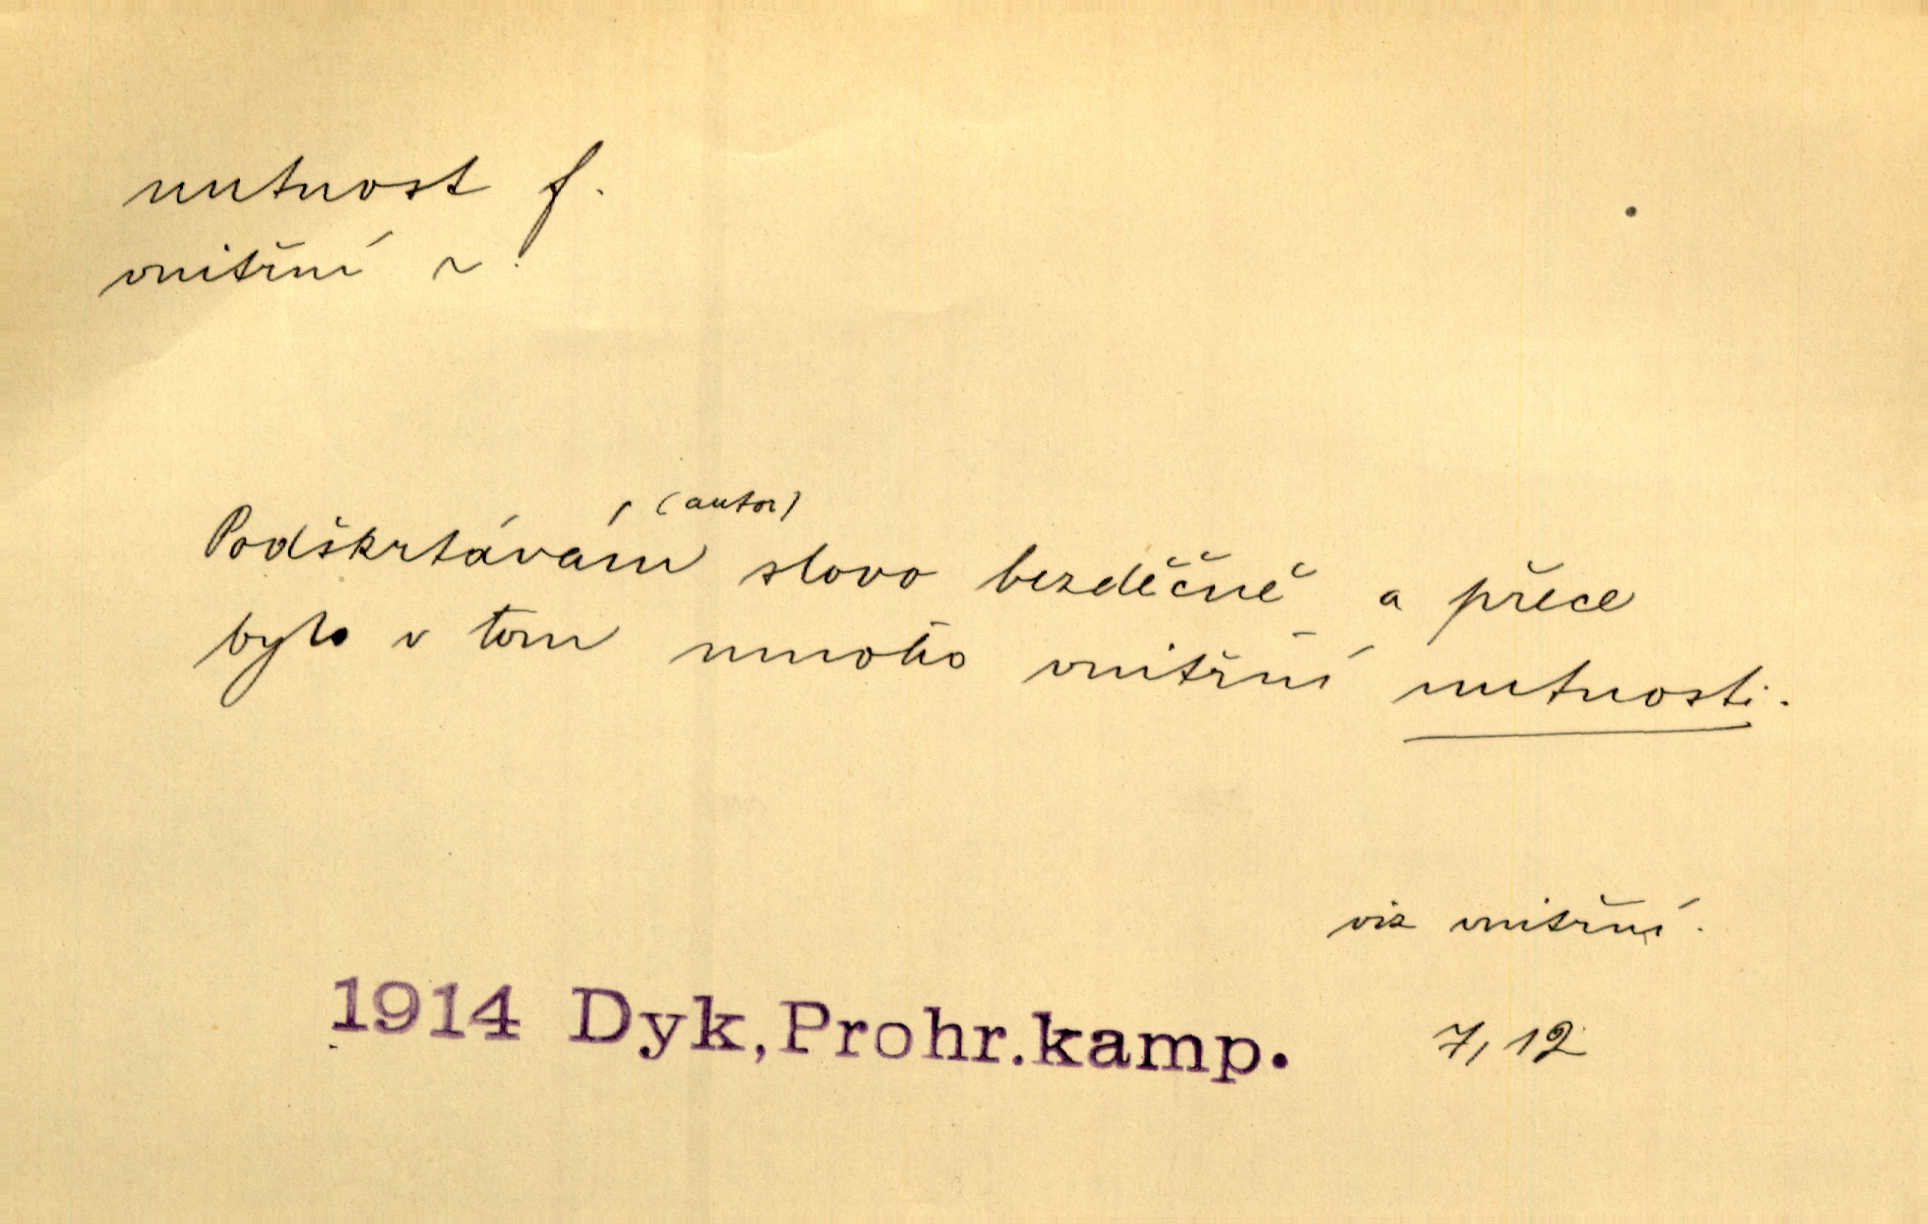 nutnost f.
vnitřní ~
(autor)
Podškrtávám slovo bezděčně a přece
bylo v tom mnoho vnitřní nutnosti.
viz vnitřní.
1914 Dyk,Prohr.kamp. 7, 12